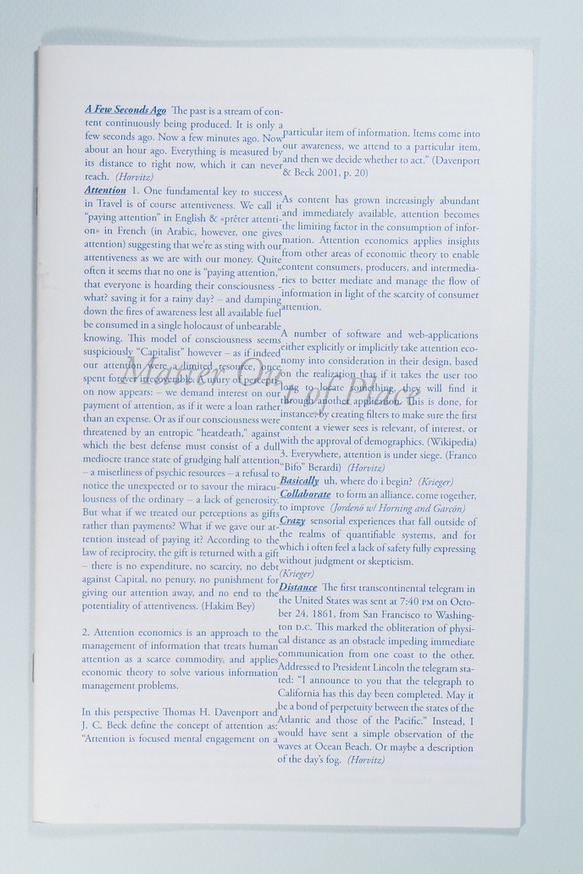 A Few Seconds Ago The past is a stream of con-
tent continuously being produced. It is only a
few seconds ago. Now a few minutes ago. Now
about an hour ago. Everything is measured by
its distance to right now, which it can never
reach. (Horvitz)
Attention 1. One fundamental key to success
in Travel is of course attentiveness. We call it
"paying attention" in English & «prêter attenti-
on» in French (in Arabic, however, one gives
attention) suggesting that we're as sting with our
attentiveness as we are with our money. Quite
often it seems that no one is "paying attention,"
that everyone is hoarding their consciousness -
what? saving it for a rainy day? – and damping
down the fires of awareness lest all available fuel
be consumed in a single holocaust of unbearable
knowing. This model of consciousness seems
suspiciously "Capitalist" however – as if indeed
our attention were a limited resource, once
spent forever irrecoverable. A usury of perception
on now appears: – we demand interest on our
payment of attention, as if it were a loan rather
than an expense. Or as if our consciousness were
threatened by an entropic "heatdeath," against
which the best defense must consist of a dull
mediocre trance state of grudging half attention
– a miserliness of psychic resources – a refusal to
notice the unexpected or to savour the miracu-
lousness of the ordinary – a lack of generosity.
But what if we treated our perceptions as gifts
rather than payments? What if we gave our at-
tention instead of paying it? According to the
law of reciprocity, the gift is returned with a gift
– there is no expenditure, no scarcity, no debt
against Capital, no penury, no punishment for
giving our attention away, and no end to the
potentiality of attentiveness. (Hakim Bey)
2. Attention economics is an approach to the
management of information that treats human
attention as a scarce commodity, and applies
economic theory to solve various information
management problems.
In this perspective Thomas H. Davenport and
J. C. Beck define the concept of attention as:
"Attention is focused mental engagement on a
particular item of information. Items come into
our awareness, we attend to a particular item,
and then we decide whether to act." (Davenport
& Beck 2001, p. 20)
As content has grown increasingly abundant
and immediately available, attention becomes
the limiting factor in the consumption of infor-
mation. Attention economics applies insights
from other areas of economic theory to enable
content consumers, producers, and intermedia-
ries to better mediate and manage the flow of
information in light of the scarcity of consumer
attention.
A number of software and web-applications
either explicitly or implicitly take attention eco-
nomy into consideration in their design, based
on the realization that if it takes the user too
long to locate something, they will find it
through another application. This is done, for
instance, by creating filters to make sure the first
content a viewer sees is relevant, of interest, or
with the approval of demographics. (Wikipedia)
3. Everywhere, attention is under siege. (Franco
"Bifo" Berardi) (Horvitz)
Basically uh, where do i begin? (Krieger)
Collaborate to form an alliance, come together,
to improve (Jordenö w/ Horning and Garcón)
Crazy sensorial experiences that fall outside of
the realms of quantifiable systems, and for
which i often feel a lack of safety fully expressing
without judgment or skepticism.
(Krieger)
Distance The first transcontinental telegram in
the United States was sent at 7:40 PM on Octo-
ber 24, 1861, from San Francisco to Washing-
ton D.C. This marked the obliteration of physi-
cal distance as an obstacle impeding immediate
communication from one coast to the other.
Addressed to President Lincoln the telegram sta-
ted: "I announce to you that the telegraph to
California has this day been completed. May it
be a bond of perpetuity between the states of the
Atlantic and those of the Pacific." Instead, I
would have sent a simple observation of the
waves at Ocean Beach. Or maybe a description
of the day's fog. (Horvitz)
Matter Out
of Place